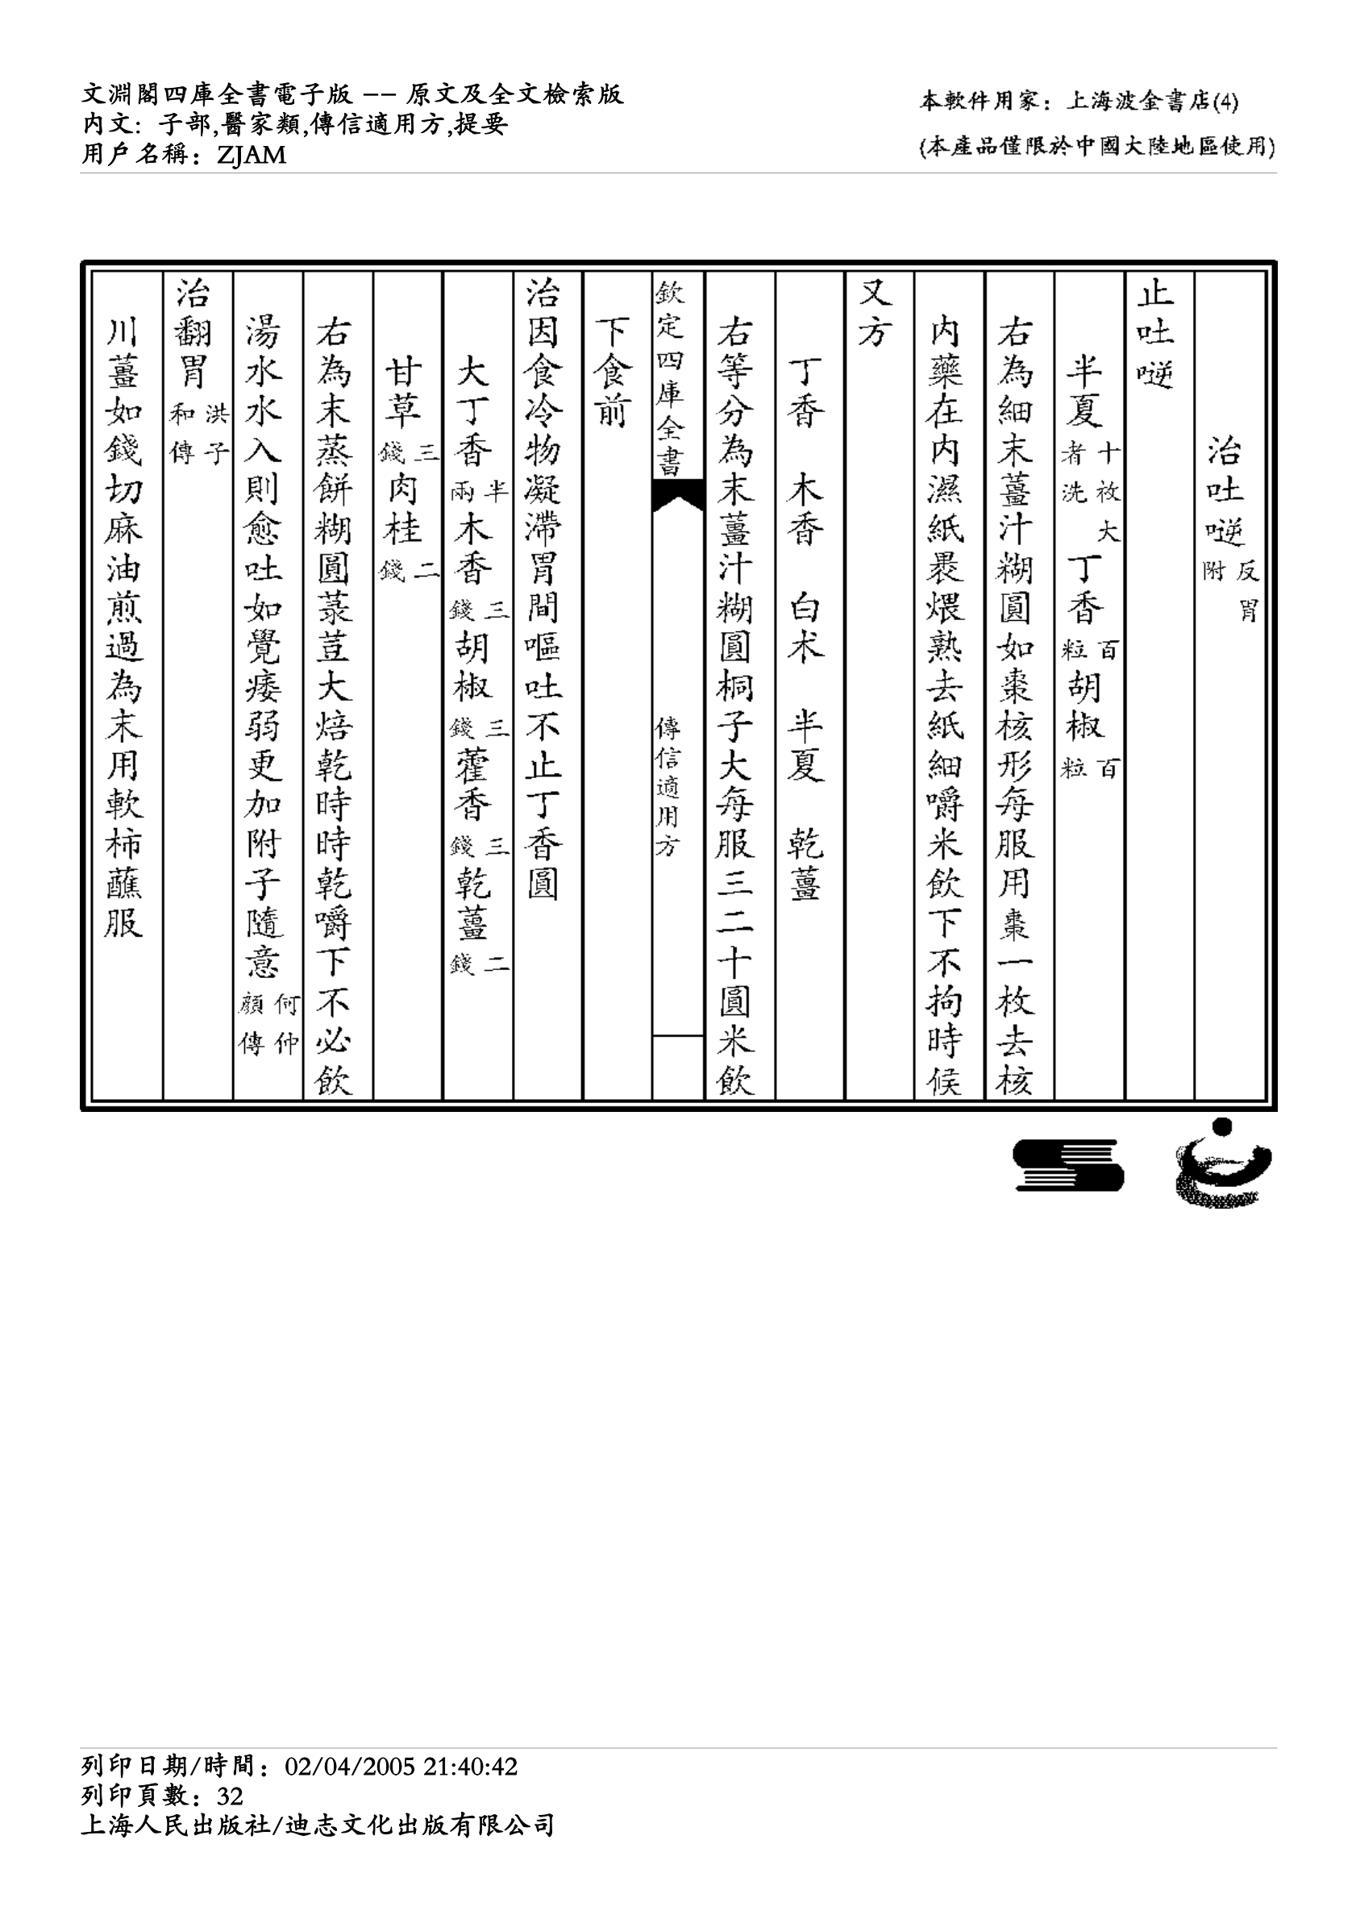 文淵閣四庫全書電子版 -- 原文及全文檢索版
内文: 子部,醫家類,傳信適用方,提要
用戶名稱: ZJAM
本軟件用家: 上海波金書店(4)
(本產品僅限於中國大陸地區使用)
治吐噦反胃附
止吐噦
半夏十枚大者洗丁香百粒胡椒百粒
右為細末薑汁糊圓如棗核形每服用棗一枚去核
内藥在内濕紙裹煨熟去紙細嚼米飲下不拘時候
又方
丁香 木香 白术 半夏 乾薑
右等分為末薑汁糊圓桐子大每服三二十圓米飲
欽定四庫全書 傳信適用方
下食前
治因食冷物凝滯胃間嘔吐不止丁香圓
大丁香半兩木香三錢胡椒三錢藿香三錢乾薑二錢
甘草三錢肉桂二錢
右為末蒸餅糊圓菉荳大焙乾時時乾嚼下不必飲
湯水水入則愈吐如覺痿弱更加附子隨意何仲顏傳
治翻胃洪子和傳
川薑如錢切麻油煎過為末用軟柿蘸服
列印日期/時間: 02/04/2005 21:40:42
列印頁數: 32
上海人民出版社/迪志文化出版有限公司